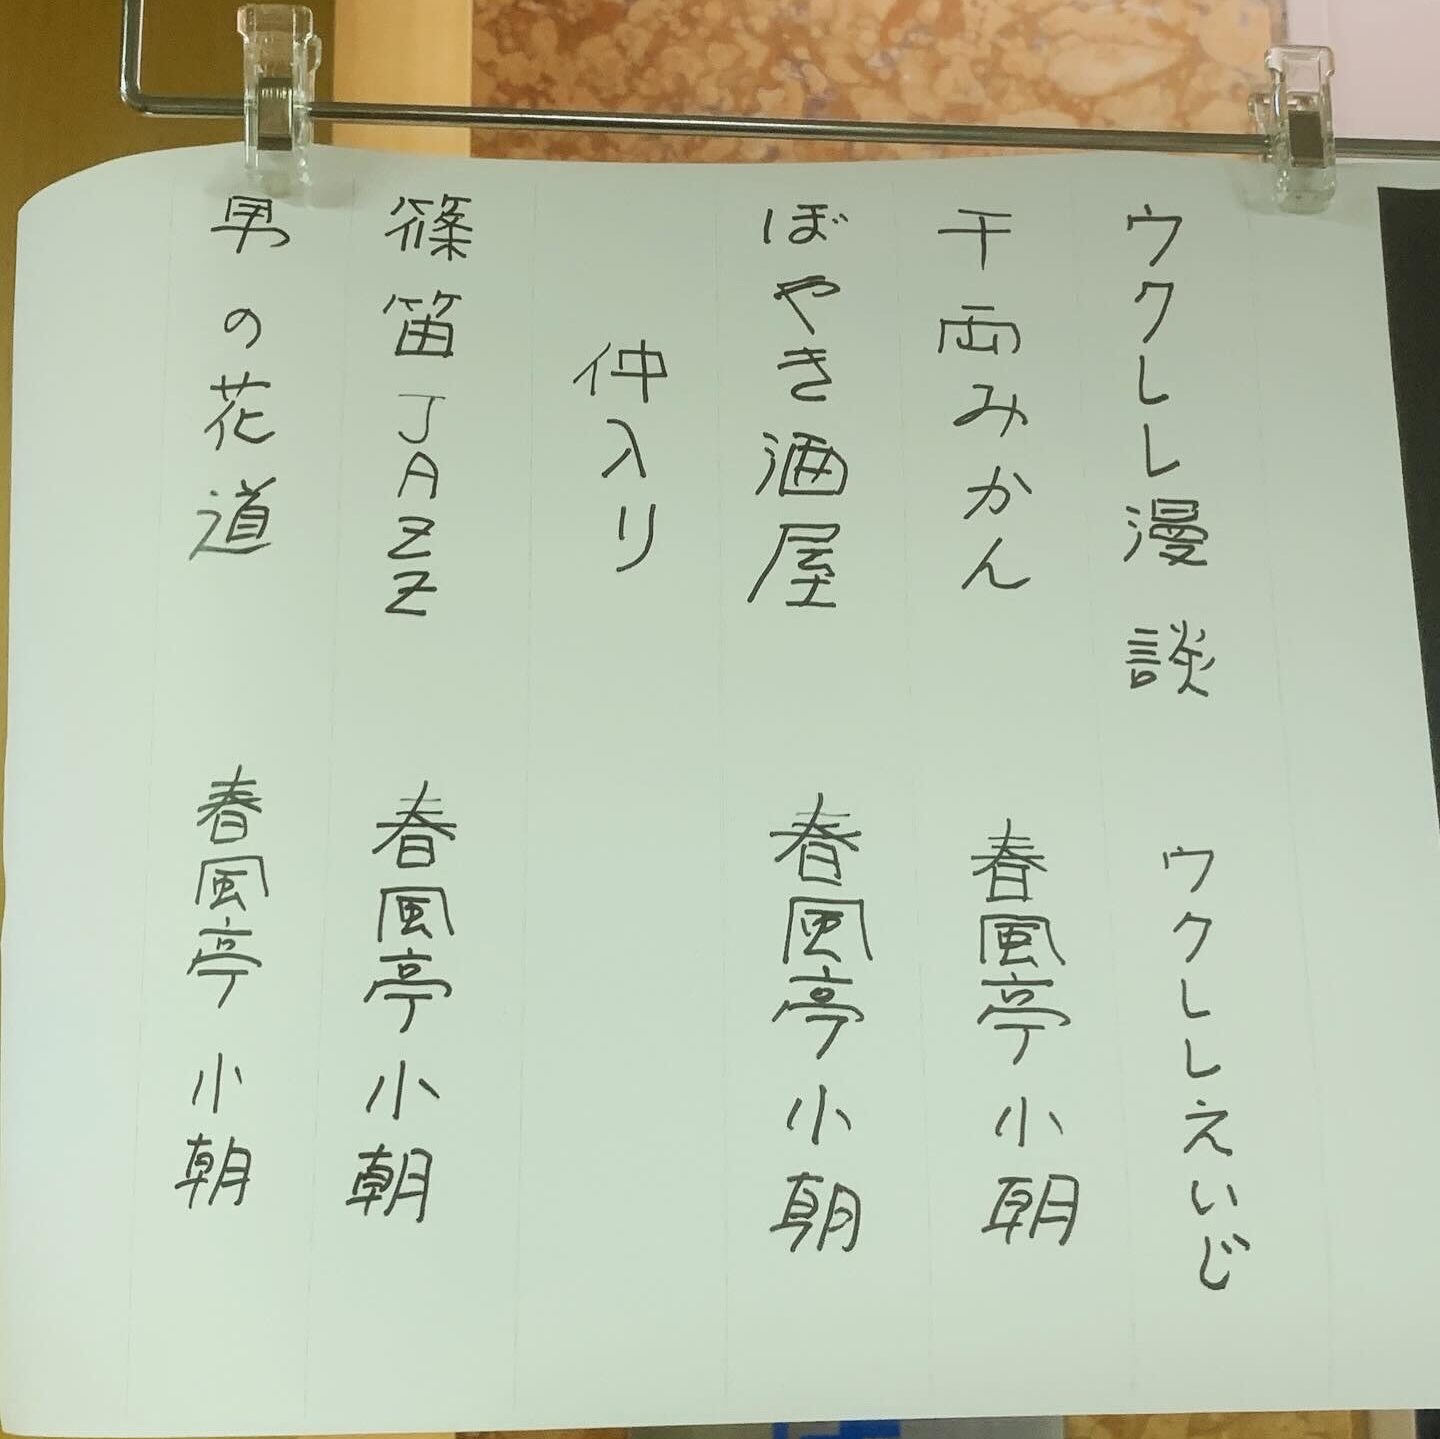 ウクレレ漫談 ウクレレえいじ
千両みかん 春風亭小朝
ぼやき酒屋 春風亭小朝
仲入り
篠笛JAZZ 春風亭小朝
男の花道 春風亭小朝